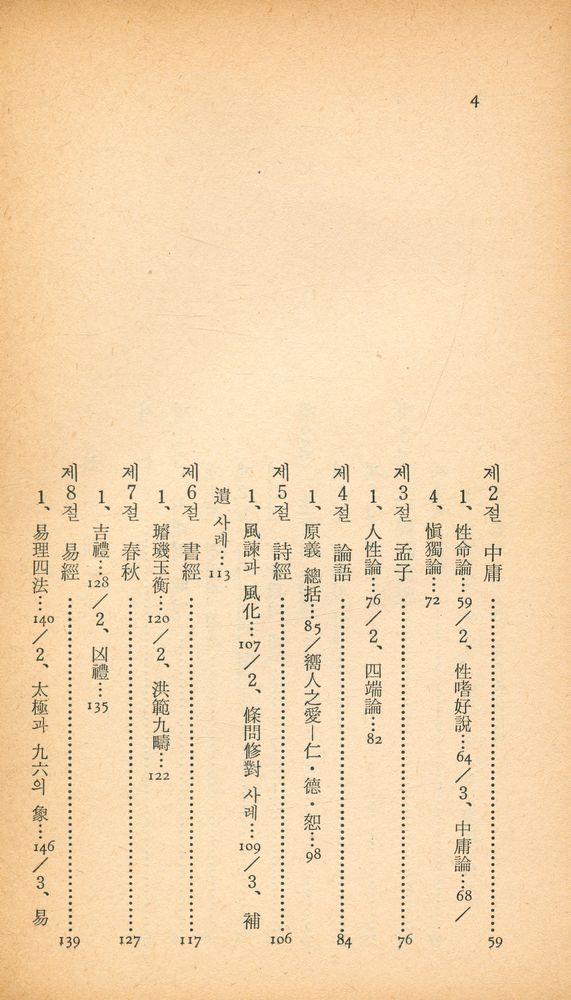 4
제2절 中庸……59
1、性命論…59/2、性嗜好說…64/3、中庸論…68/
4、愼獨論…72
제3절 孟子……76
1、人性論…76/2、四端論…82
제4절 論語……84
1、原義 總括…85/嚮人之愛—仁·德·恕…98
제5절 詩經……106
1、風諫과 風化…107/2、條問修對 사례…109/3、補
遺 사례…113
제6절 書經……117
1、璿璣玉衡…120/2、洪範九疇…122
제7절 春秋……127
1、吉禮…128/2、凶禮…135
제8절 易經……139
1、易理四法…140/2、太極과 九六의 象…146/3、易